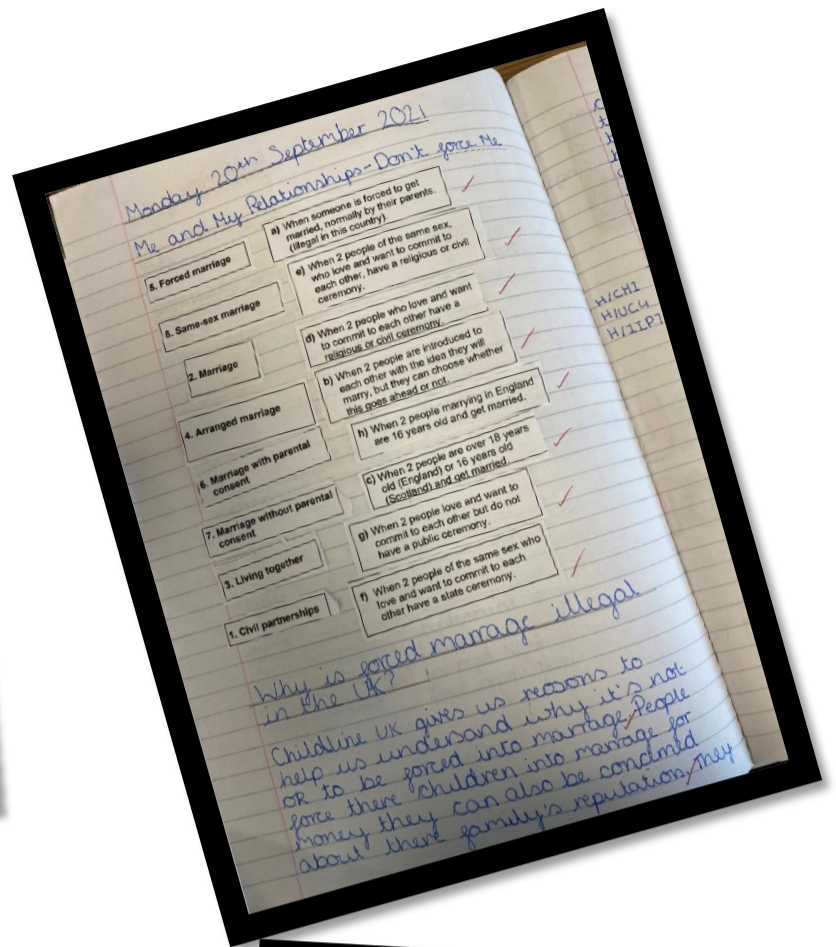 Monday 20th September 2021
Me and My Relationships - Don't force Me
5. Forced marriage
a) When someone is forced to get
married, normally by their parents.
(illegal in this country).
8. Same-sex marriage
e) When 2 people of the same sex,
who love and want to commit to
each other, have a religious or civil
ceremony.
2. Marriage
d) When 2 people who love and want
to commit to each other have a
religious or civil ceremony.
4. Arranged marriage
b) When 2 people are introduced to
each other with the idea they will
marry, but they can choose whether
this goes ahead or not.
6. Marriage with parental
consent
h) When 2 people marrying in England
are 16 years old and get married.
7. Marriage without parental
consent
c) When 2 people are over 18 years
old (England) or 16 years old
(Scotland) and get married.
3. Living together
g) When 2 people love and want to
commit to each other but do not
have a public ceremony.
1. Civil partnerships
f) When 2 people of the same sex who
love and want to commit to each
other have a state ceremony.
Why is forced marrage illegal
in the UK?
Childline UK gives us reasons to
help us undersand why it's not
OK to be forced into marrage. People
force there children into marrage for
money they can also be concirned
about there family's reputation. They
H/CH1
H/UC4